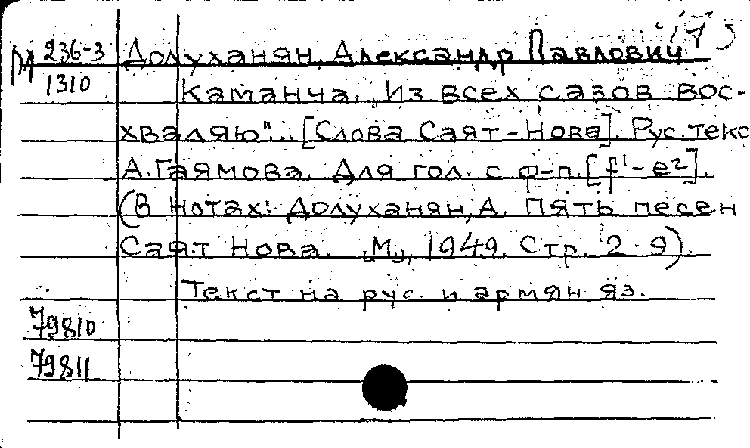 М 236-3 Долуханян, Александр Павлович
1310 Каманча. „Из всех сазов вос-
хваляю"... [Слова Саят-Нова]. Рус. текс
А. Гаямова. Для гол. с ф-п. [f¹-e²].
(В нотах: Долуханян, А. Пять песен
Саят Нова. М., 1949. Стр. 2-9).
Текст на рус. и армян. яз.
79810
79811